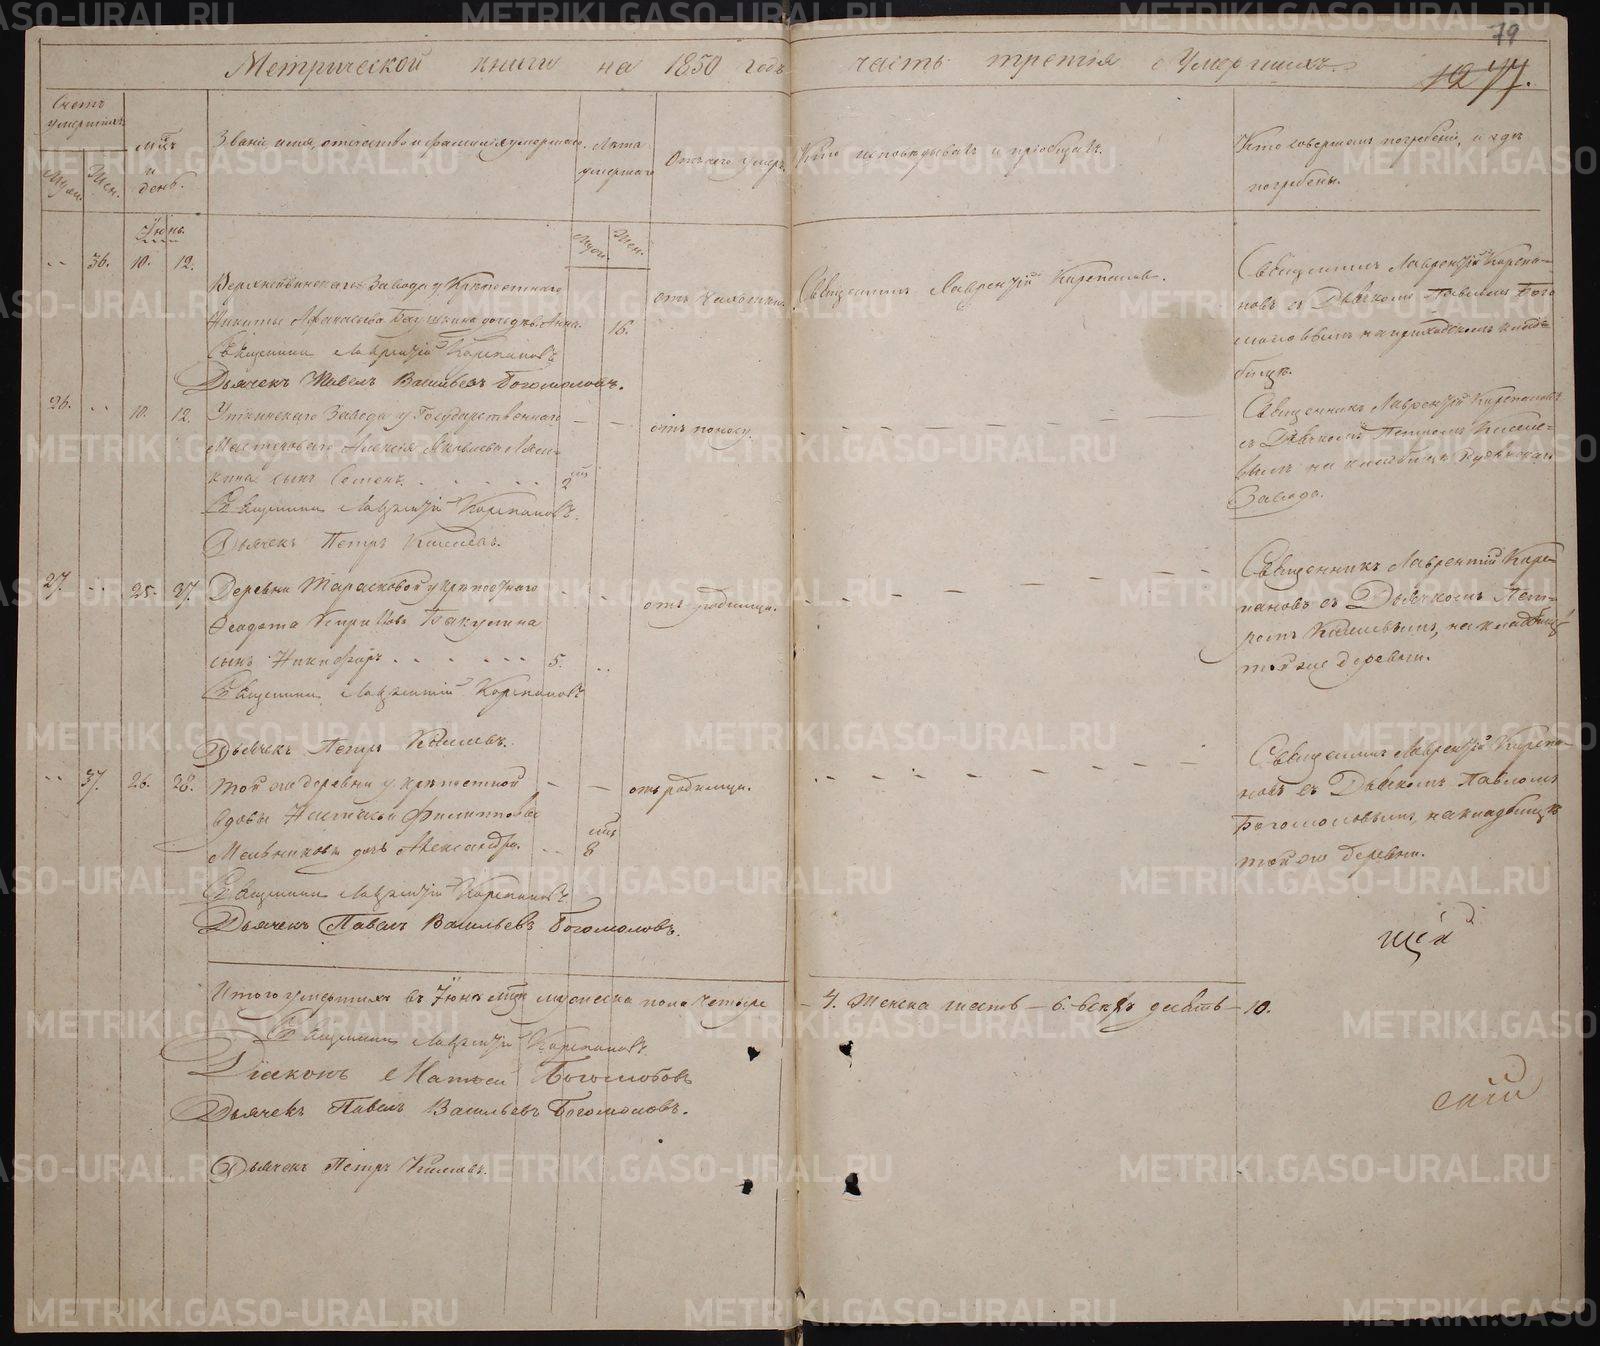 79
Метрической книги на 1850 годъ часть третія о Умершихъ.
1277.
Счетъ умершихъ
Муж. Жен.
М-цъ и день.
Званіе, имя, отчество и фамилія умершаго
Лѣта умершаго
Муж. Жен.
Отъ чего умеръ
Кто исповѣдывалъ и пріобщалъ.
Кто совершалъ погребеніе, и гдѣ погребены.
Іюнь.
-- 36. 10. 12.
Завода у Крѣпостнаго
Никиты дочь дѣв. Анна. 18.
Священникъ Лаврентій Карепановъ
Дьячекъ Павелъ Васильевъ Богомоловъ.
Священникъ Лаврентій Карепановъ.
Священникъ Лаврентій Карепа-
новъ съ Дьячкомъ Павломъ Бого
моловымъ на приходскомъ клад-
бищѣ.
26. -- 10. 12. Уткинскаго Завода у Государственнаго
Мастероваго Алексѣя Яковлева
сынъ Семенъ. 2
отъ поносу.
Священникъ Лаврентій Карепановъ.
Дьячекъ Петръ Киселевъ.
Священникъ Лаврентій Карепановъ
съ Дьячкомъ Петромъ Киселе-
вымъ на кладбищѣ
Завода.
27. -- 25. 27. Деревни Тарасковой у крѣпостнаго
Ѳеодота Кирилова Бакулина
сынъ Никифоръ. 5.
отъ родимца.
Священникъ Лаврентій Карепановъ
Дьячекъ Петръ Киселевъ.
Священникъ Лаврентій Каре-
пановъ съ Дьячкомъ Пет-
ромъ Киселевымъ, на кладбищѣ
той же деревни.
-- 37. 26. 28. той же деревни у крѣпостной
вдовы Настасьи Филипповой
Мельниковой дочь Александра. 8
отъ родимца.
Священникъ Лаврентій Карепановъ
Дьячекъ Павелъ Васильевъ Богомоловъ.
Священникъ Лаврентій Карепа-
новъ съ Дьячкомъ Павломъ
Богомоловымъ, на кладбищѣ
той же деревни.
Итого умершихъ въ Іюнѣ м-цѣ мужеска пола четыре - 4. женска шесть - 6. всѣхъ десять - 10.
Священникъ Лаврентій Карепановъ
Діаконъ Матѳей Боголюбовъ
Дьячекъ Павелъ Васильевъ Богомоловъ.
Дьячекъ Петръ Киселевъ.
METRIKI.GASO-URAL.RU